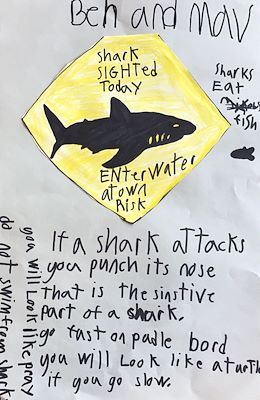 Beh and Mav
shark
SIGHTED
Today
Sharks
Eat
fish
ENter Water
atown
Risk
If a shark attacks
you punch its nose
That is the sinstive
part of a shark.
go fast on padle bord
you will Look like a turtl
if you go slow.
you will Look like pray
do not swim from shark